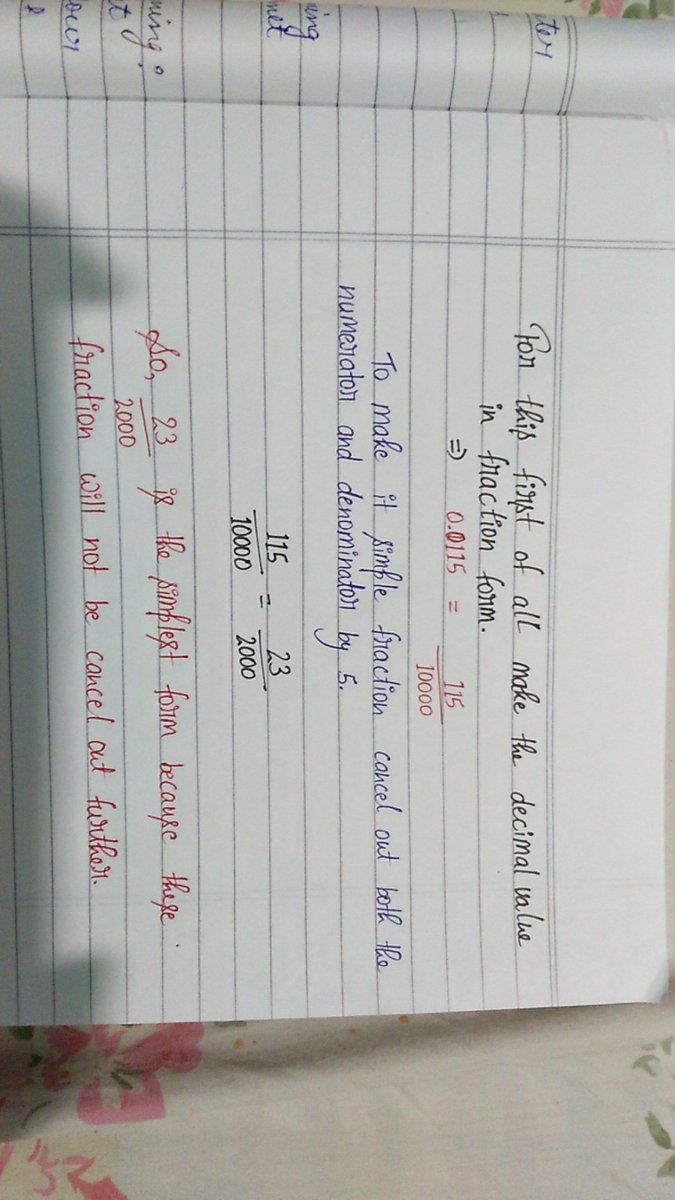 For this first of all make the decimal value
in fraction form.
⇒ 0.0115 = 115/10000
To make it simple fraction cancel out both the
numerator and denominator by 5.
115/10000 = 23/2000
So, 23/2000 is the simplest form because these
fraction will not be cancel out further.
ter
ing
net
ning
t
our